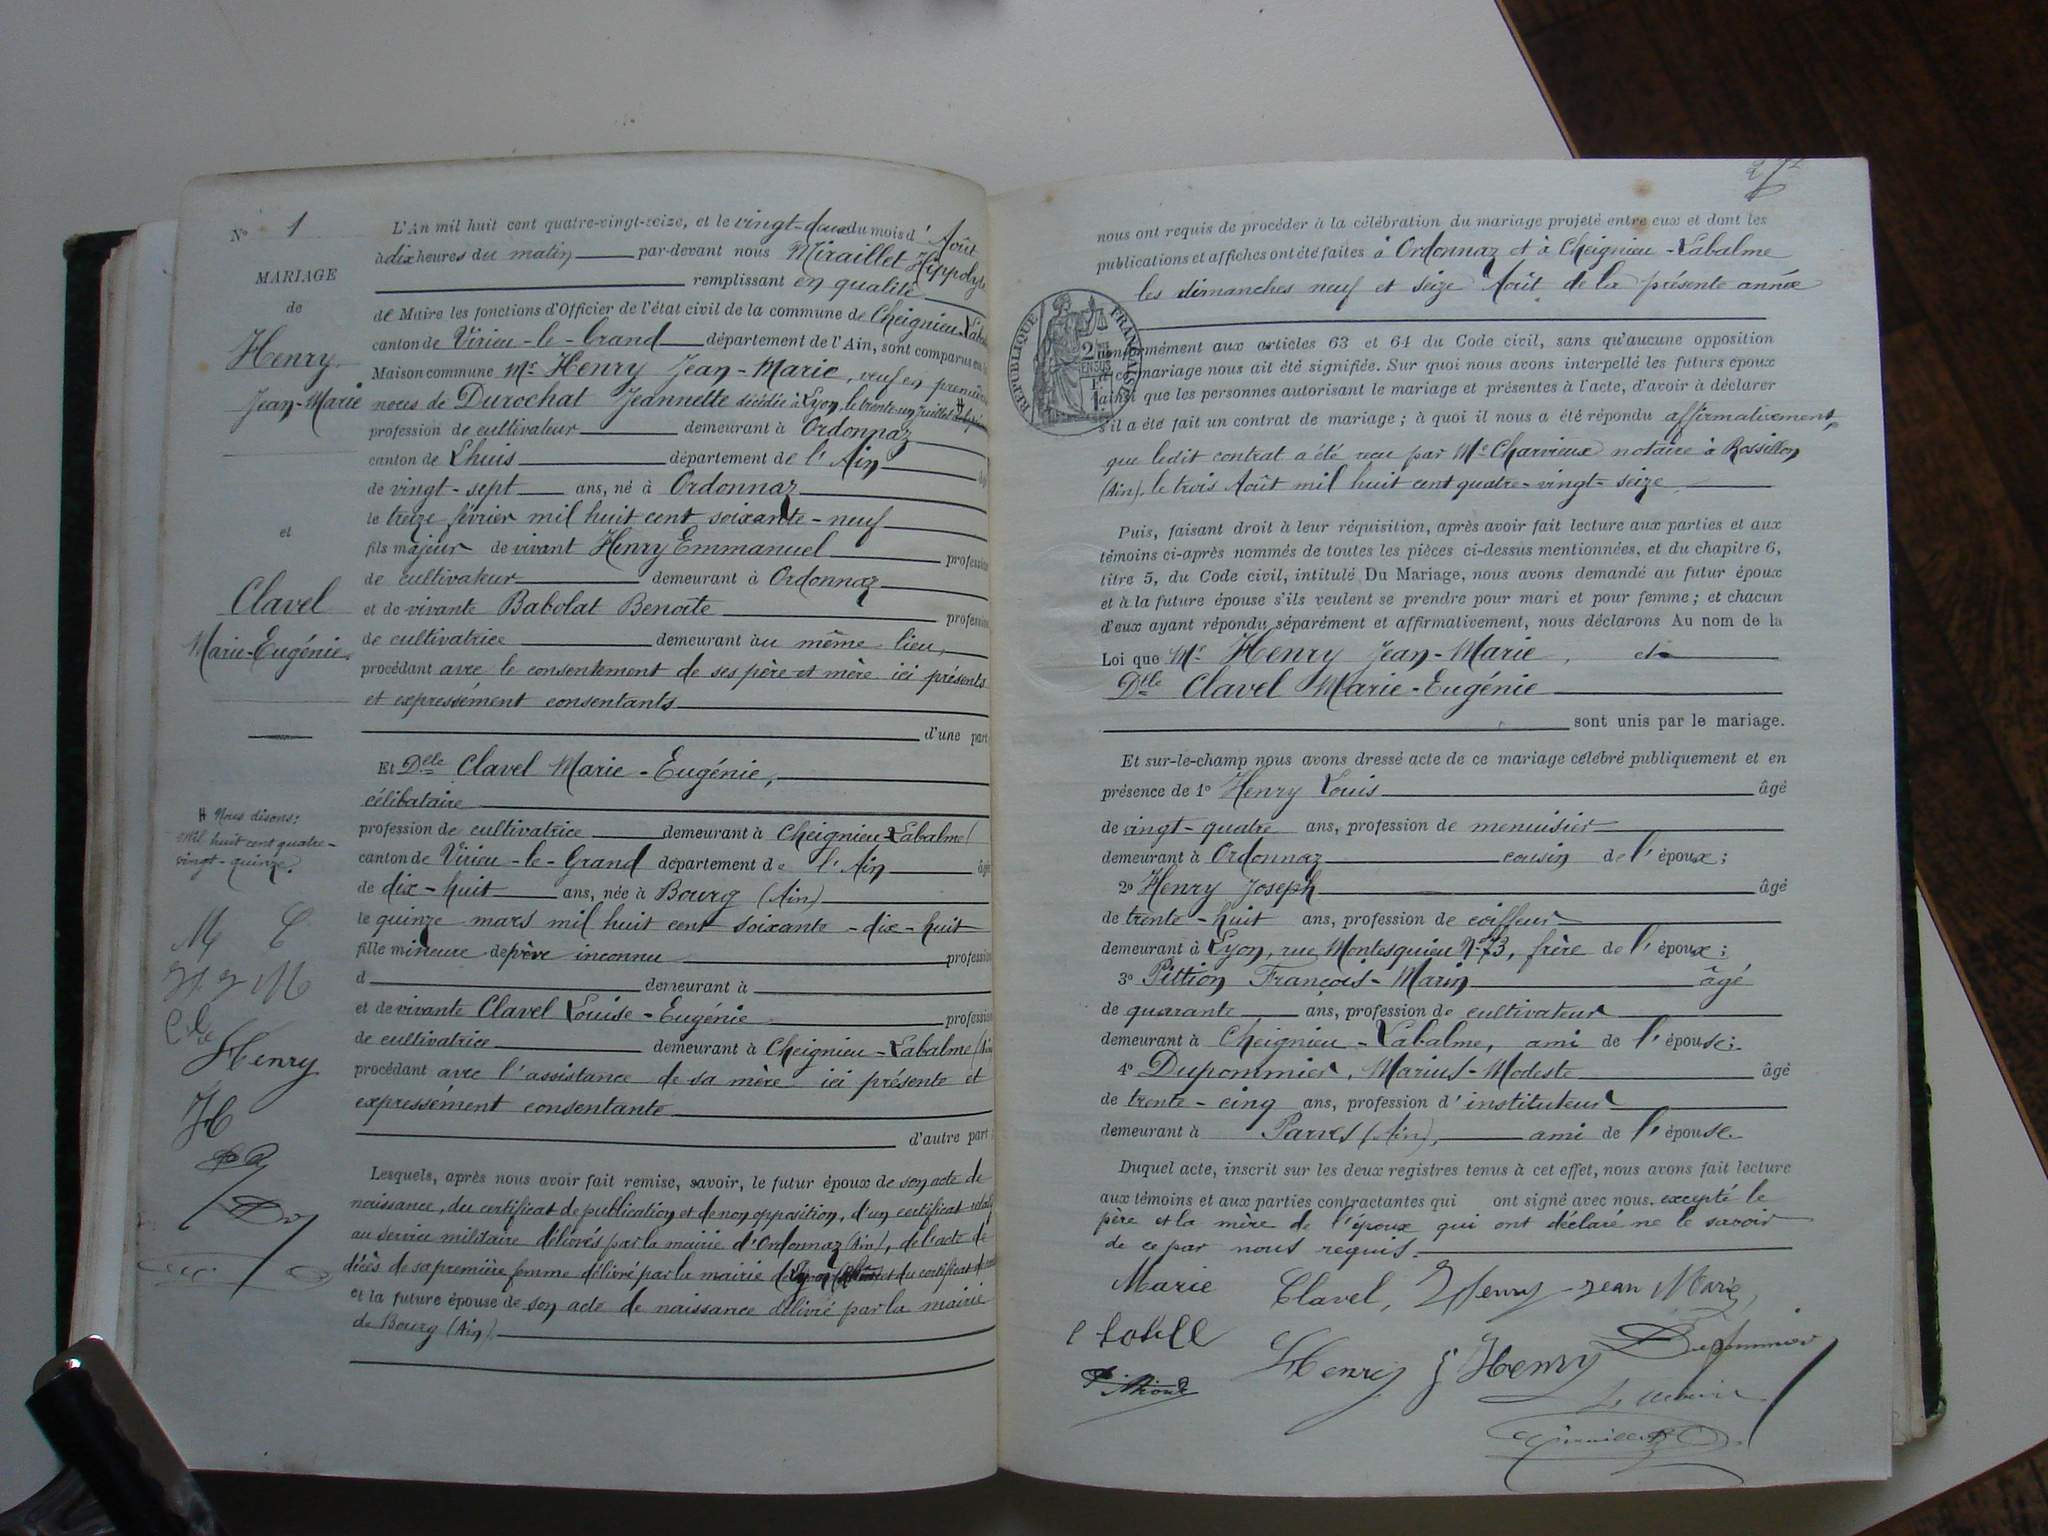 Nº 1
MARIAGE
de
Henry
Jean-Marie
et
Clavel
Marie-Eugénie
# Nous disons:
mil huit cent quatre-
vingt-quinze.
M C
H J M
Henry
H
L'An mil huit cent quatre-vingt-seize, et le vingt-deux du mois d'Août
à dix heures du matin par-devant nous Miraillet Hippolyte
remplissant en qualité
de Maire les fonctions d'Officier de l'état civil de la commune de Cheignieu-Labalme
canton de Virieu-le-Grand département de l'Ain, sont comparus en la
Maison commune Mr Henry Jean-Marie, veuf en premières
noces de Durochat Jeannette décédée à Lyon, le trente-un juillet #
profession de cultivateur demeurant à Ordonnaz
canton de Lhuis département de l'Ain
de vingt-sept ans, né à Ordonnaz
le treize février mil huit cent soixante-neuf
fils majeur de vivant Henry Emmanuel profession
de cultivateur demeurant à Ordonnaz
et de vivante Babolat Benoîte profession
de cultivatrice demeurant au même lieu,
procédant avec le consentement de ses père et mère ici présents
et expressément consentants
d'une part
Et Delle Clavel Marie-Eugénie,
célibataire
profession de cultivatrice demeurant à Cheignieu-Labalme
canton de Virieu-le-Grand département de l'Ain âgée
de dix-huit ans, née à Bourg (Ain)
le quinze mars mil huit cent soixante-dix-huit
fille mineure de père inconnu profession
d demeurant à
et de vivante Clavel Louise-Eugénie profession
de cultivatrice demeurant à Cheignieu-Labalme (Ain
procédant avec l'assistance de sa mère ici présente et
expressément consentante
d'autre part;
Lesquels, après nous avoir fait remise, savoir, le futur époux de son acte de
naissance, du certificat de publication et de non opposition, d'un certificat relatif
au service militaire délivrés par la mairie d'Ordonnaz (Ain), de l'acte de
décès de sa première femme délivré par la mairie de Lyon et du certificat de
et la future épouse de son acte de naissance délivré par la mairie
de Bourg (Ain).
nous ont requis de procéder à la célébration du mariage projeté entre eux et dont les
publications et affiches ont été faites à Ordonnaz et à Cheignieu-Labalme
les dimanches neuf et seize Août de la présente année
RÉPUBLIQUE FRANÇAISE
conformément aux articles 63 et 64 du Code civil, sans qu'aucune opposition
à ce mariage nous ait été signifiée. Sur quoi nous avons interpellé les futurs époux
ainsi que les personnes autorisant le mariage et présentes à l'acte, d'avoir à déclarer
s'il a été fait un contrat de mariage; à quoi il nous a été répondu affirmativement,
que ledit contrat a été reçu par Me Charvieux notaire à Rossillon
(Ain), le trois Août mil huit cent quatre-vingt-seize
Puis, faisant droit à leur réquisition, après avoir fait lecture aux parties et aux
témoins ci-après nommés de toutes les pièces ci-dessus mentionnées, et du chapitre 6,
titre 5, du Code civil, intitulé Du Mariage, nous avons demandé au futur époux
et à la future épouse s'ils veulent se prendre pour mari et pour femme; et chacun
d'eux ayant répondu séparément et affirmativement, nous déclarons Au nom de la
Loi que Mr Henry Jean-Marie, et
Dlle Clavel Marie-Eugénie
sont unis par le mariage.
Et sur-le-champ nous avons dressé acte de ce mariage célébré publiquement et en
présence de 1º Henry Louis âgé
de vingt-quatre ans, profession de menuisier
demeurant à Ordonnaz cousin de l'époux;
2º Henry Joseph âgé
de trente-huit ans, profession de coiffeur
demeurant à Lyon, rue Montesquieu Nº 73, frère de l'époux;
3º Pittion François-Marin âgé
de quarante ans, profession de cultivateur
demeurant à Cheignieu-Labalme, ami de l'épouse;
4º Dupommier, Marius-Modeste âgé
de trente-cinq ans, profession d'instituteur
demeurant à Parves (Ain), ami de l'épouse.
Duquel acte, inscrit sur les deux registres tenus à cet effet, nous avons fait lecture
aux témoins et aux parties contractantes qui ont signé avec nous. excepté le
père et la mère de l'époux qui ont déclaré ne le savoir
de ce par nous requis.
Marie Clavel, Henry Jean Marie
Henry J Henry Dupommier
Le Maire
Miraillet